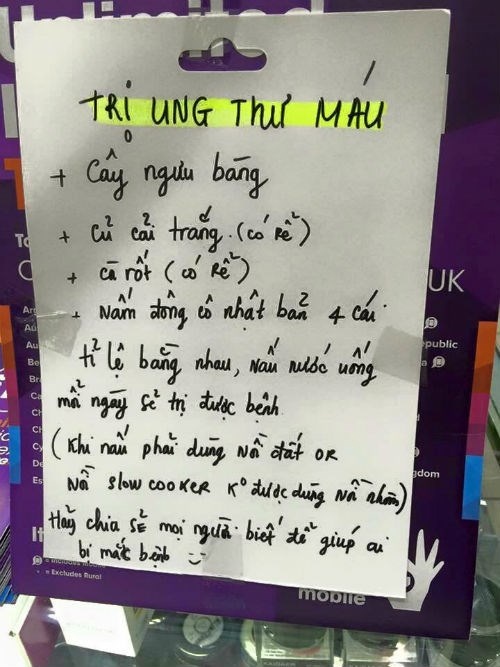 Unlimited
TRỊ UNG THƯ MÁU
+ Cây ngưu bàng
+ Củ cải trắng. (có Rể)
+ cà rốt (có Rể)
+ Nấm đông cô nhật bản 4 cái
tỉ lệ bằng nhau, Nấu nước uống
mỗi ngày sẽ trị được bệnh.
(Khi nấu phải dùng Nồi đất OR
Nồi SLOW COOKER Kº được dùng Nồi nhôm)
Hãy chia sẽ mọi người biết để giúp ai
bị mắc bệnh
UK
epublic
gdom
= Excludes Rural
mobile